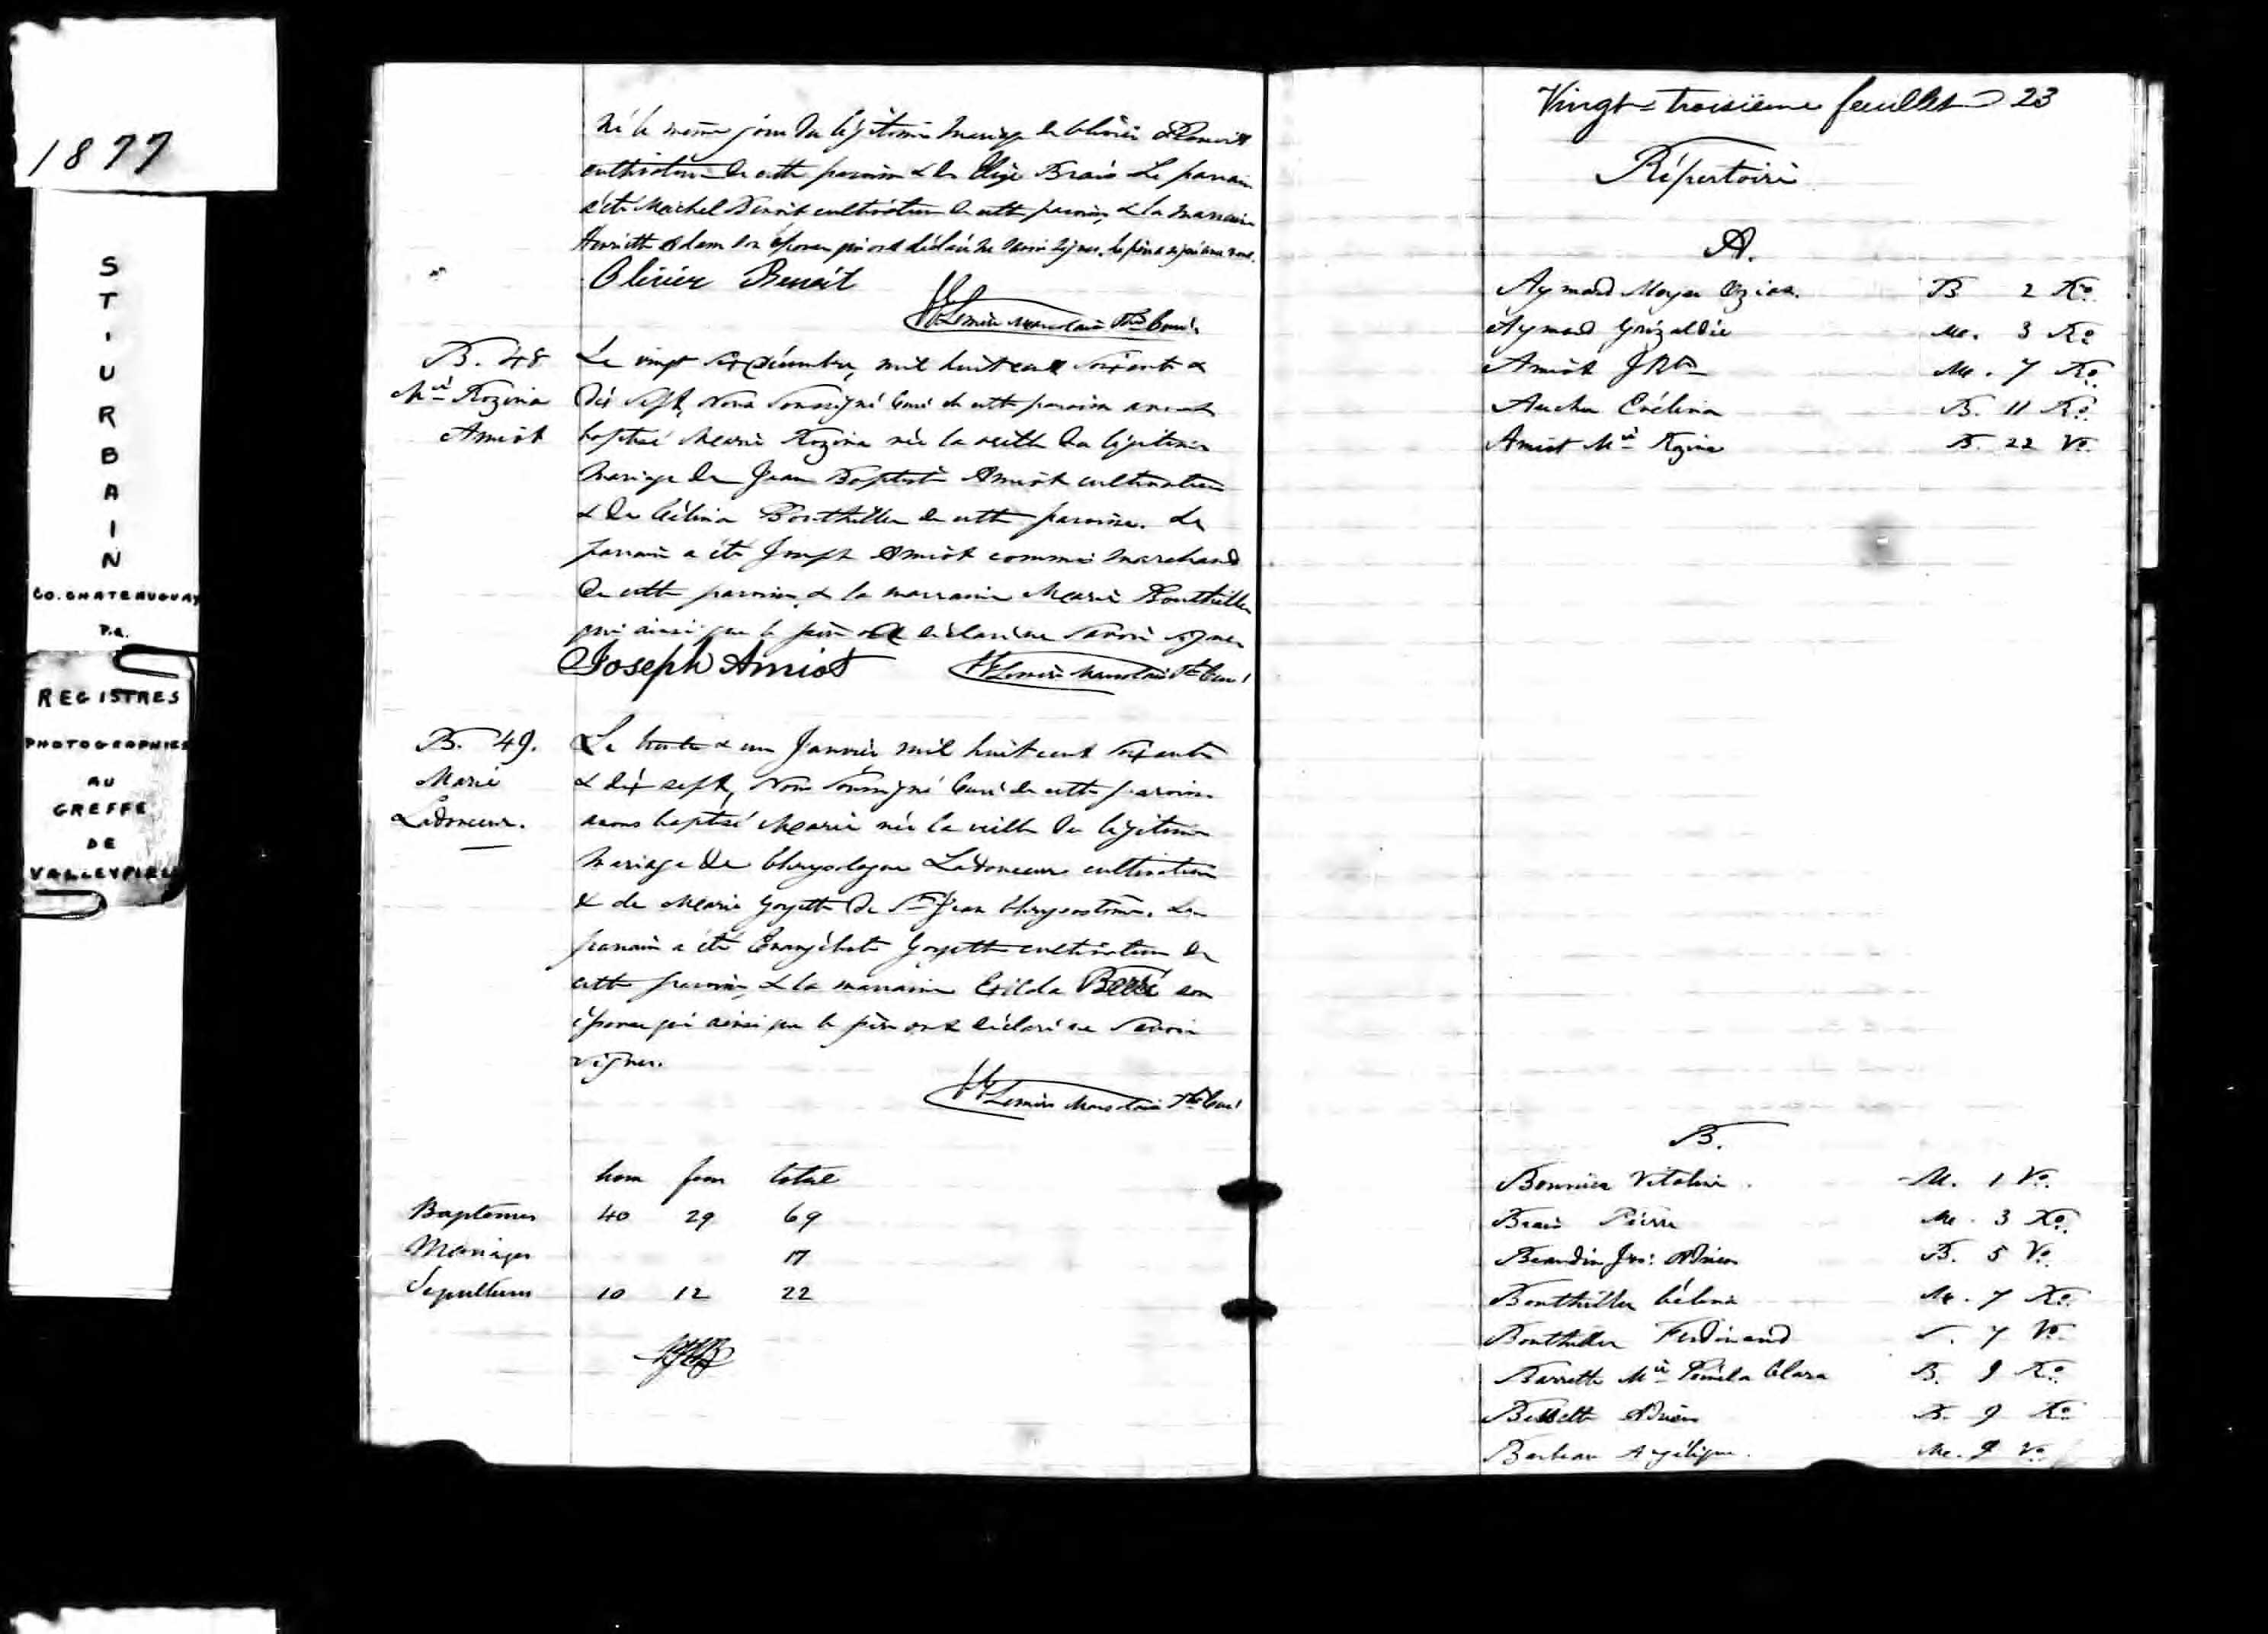 1877
S
T
U
R
B
A
I
N
CO. CHATEAUGUAY
P.Q.
REGISTRES
PHOTOGRAPHIES
AU
GREFFE
DE
VALLEYFIELD
né le même jour du légitime mariage de Olivier Benoit
cultivateur de cette paroisse & de Brais Le parrain
a été Michel Benoit cultivateur de cette paroisse, & la marraine
Henriette Adam son épouse qui ont déclaré ne savoir signer. le père a signé avec nous.
Olivier Benoit
Lemire Marsolais Ptre Curé
B. 48
Mie Rozina
Amiot
Le vingt six décembre, mil huit cent soixante &
dix sept, Nous soussigné Curé de cette paroisse avons
baptisé Marie Rozina née la veille du légitime
mariage de Jean Baptiste Amiot cultivateur
& de Célina Bouthiller de cette paroisse. Le
parrain a été Joseph Amiot commis marchand
de cette paroisse, & la marraine Marie Bouthiller
qui ainsi que le père ont déclaré ne savoir signer
Joseph Amiot
Lemire Marsolais Ptre Curé
B. 49.
Marie
Ladouceur.
Le trente & un Janvier mil huit cent soixante
& dix sept, Nous soussigné Curé de cette paroisse
avons baptisé Marie née la veille du légitime
mariage de Chrysologue Ladouceur cultivateur
& de Marie Goyette de St Jean Chrysostôme. Le
parrain a été Evangéliste Goyette cultivateur de
cette paroisse, & la marraine Exilda son
épouse qui ainsi que le père ont déclaré ne savoir
signer.
Lemire Marsolais Ptre Curé
hom fem total
Baptêmes 40 29 69
Mariages 17
Sépultures 10 12 22
Vingt-troisième feuillet 23
Répertoire
A.
Aymard Moyse Ozias. B 2 Ro.
Aymard Grizaldie M. 3 Ro
Amiot J Bte M. 7 Ro.
Aucher Evélina B. 11 Ro.
Amiot Mie Rozina B. 22 Vo.
B.
Bonnier Vitaline. M. 1 Vo.
Brais Pierre M. 3 Ro.
Beaudin Jos: Adrien B. 5 Vo.
Bouthiller Célina M. 7 Ro.
Bouthiller Ferdinand S. 7 Vo.
Barrette Mie Clara B. 9 Ro
Bessette Adrien B. 9 Ro
Barbeau Angélique. M. 9 Vo